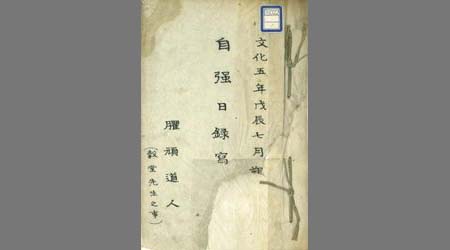 文化五年戊辰七月
自强日録寫
臞頑道人
(穀堂先生之事)